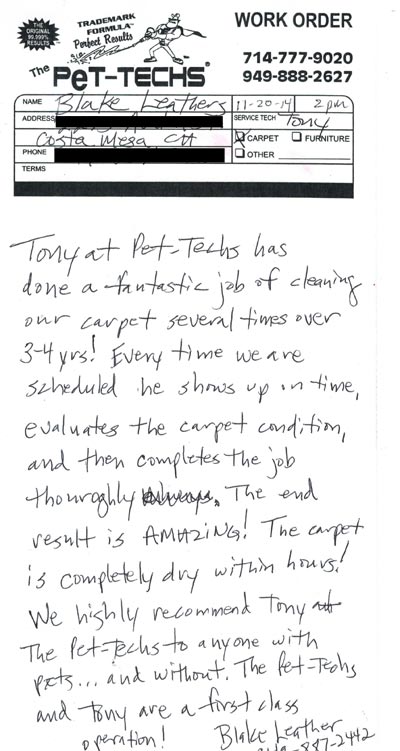 THE ORIGINAL 99.999% RESULTS
TRADEMARK FORMULA™
Perfect Results
The PeT-TECHS®
WORK ORDER
714-777-9020
949-888-2627
NAME Blake Leathers 11-20-14 2pm
ADDRESS SERVICE TECH Tony
Costa Mesa CA CARPET FURNITURE
PHONE OTHER
TERMS
Tony at Pet-Techs has
done a fantastic job of cleaning
our carpet several times over
3-4 yrs! Every time we are
scheduled he shows up on time,
evaluates the carpet condition,
and then completes the job
thouroghly. The end
result is AMAZING! The carpet
is completely dry within hours!
We highly recommend Tony at
The Pet-Techs to anyone with
pets... and without. The Pet-Techs
and Tony are a first class
operation! Blake Leather
887-2442